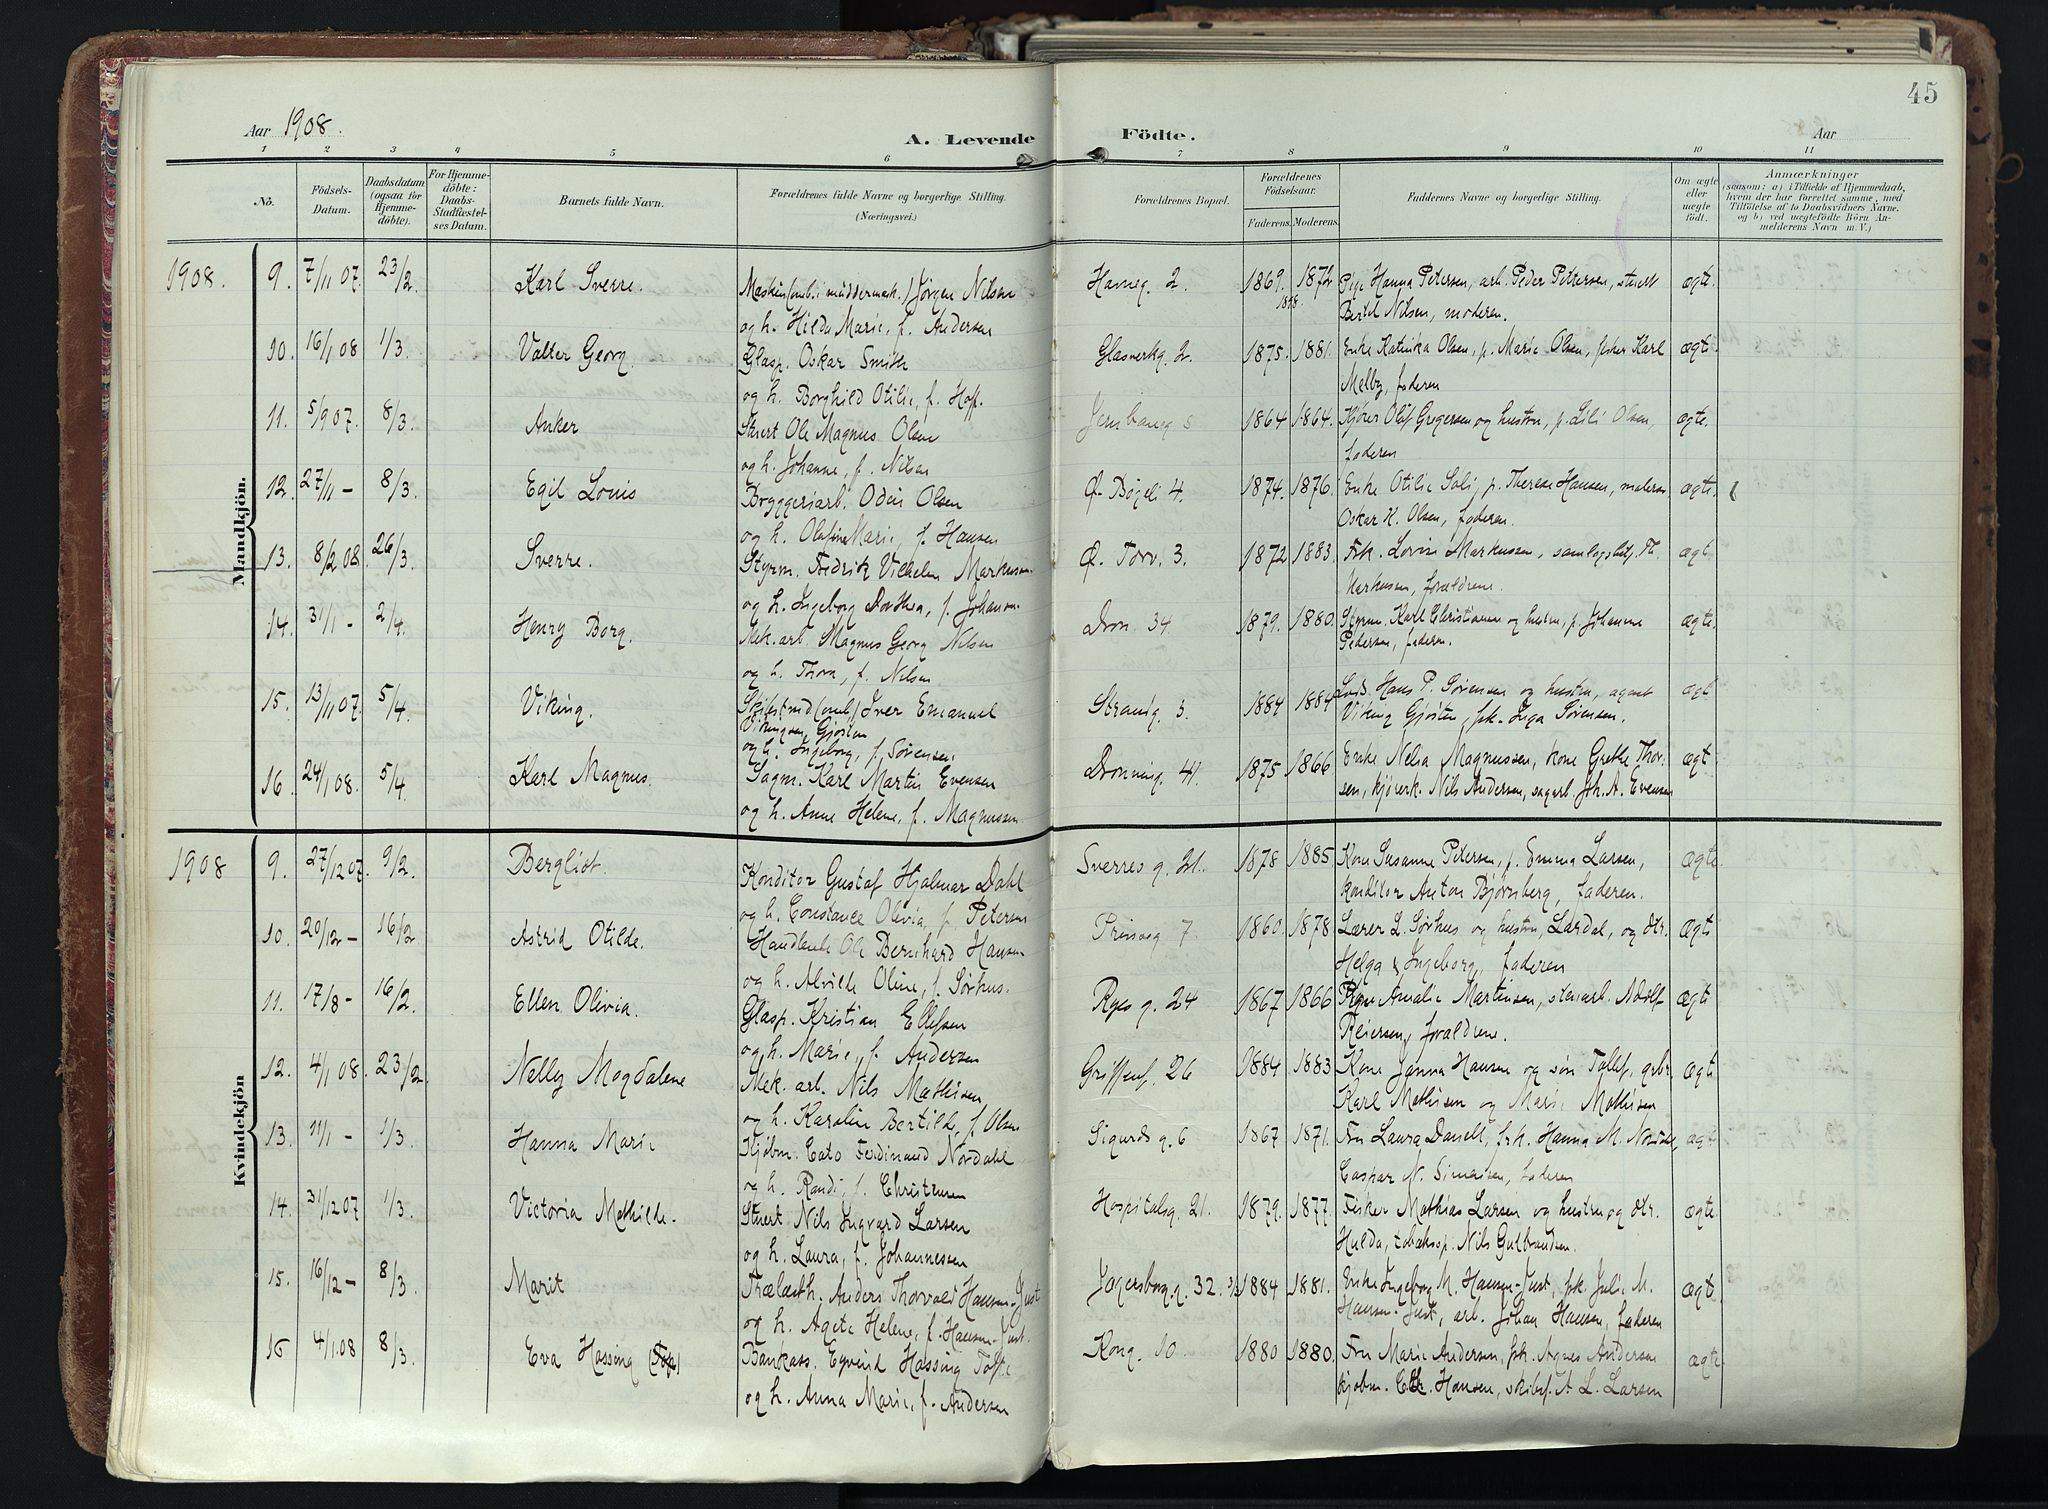 45
Aar 1908.
A. Levende Födte.
Aar
1 2 3 4 5 6 7 8 9 10 11
No.
Födsels-Datum.
Daabsdatum (ogsaa for Hjemme-döbte).
For Hjemme-döbte: Daabs-Stadfæstel-ses Datum.
Barnets fulde Navn.
Forældrenes fulde Navne og borgerlige Stilling. (Næringsvei.)
Forældrenes Bopæl.
Forældrenes Födselsaar.
Faderens. Moderens.
Faddernes Navne og borgerlige Stilling.
Om ægte eller uægte födt.
Anmærkninger
(saasom: a) i Tilfælde af Hjemmedaab, hvem der har forrettet samme, med Tilföielse af to Daabsvidners Navne. og b) ved uægtefödte Börn An-melderens Navn m. V.)
Mandkjön.
1908. 9. 7/11 07. 23/2 Karl Sverre. Maskin(omb. i muddermask.) Jørgen Nilsen Havneg. 2. 1869. 1872 Pige Hanna Petersen, arb. Peder Pettersen, stuert ægte.
og h. Hilda Marie, f. Andersen 1878. Bertel Nilsen, moderen.
10. 16/1 08 1/3. Valter Georg. Glasp. Oskar Smith Glasverkg. 2. 1875. 1881. Enke Katinka Olsen, p. Marie Olsen, fisker Karl ægte
og h. Borghild Otilie, f. Hop. Melby, faderen
11. 5/9 07. 8/3. Anker Stuert Ole Magnus Olsen Jernbaneg 5 1864 1864. Kjører Olaf Gregersen og hustru, p. Lili Olsen, ægte.
og h. Johanne, f. Nilsen faderen
12. 27/11 - 8/3. Egil Louis Bryggeriarb. Odin Olsen Ø. Bøgeli 4. 1874. 1876. Enke Otilie Soli, p. Therese Hansen, ægte.
og h. Olafine Marie, f. Hansen Oskar H. Olsen, faderen.
13. 8/2 08. 26/3. Sverre. Styrm. Fredrik Vilhelm Markussen Ø. Torv. 3. 1872 1883. Frk. Lovise Markussen, ægt
og h. Ingeborg Dorthea, f. Johansen Markusen, forældrene.
14. 31/1 - 2/4. Henry Borg. Mek. arb. Magnus Georg Nilsen Dron. 34. 1879. 1880. Styrm. Karl Christiansen og hustru, p. Johanne ægte.
og h. Thora, f. Nilsen. Pedersen, faderen.
15. 13/11 07. 5/4. Viking. Iver Emanuel Strandg. 3. 1884 1884 Hans P. Sørensen og hustru, agent ægt
Vikingsen Gjøsten Viking Gjøsten, frk. Inga Sørensen.
og h. Ingeborg, f. Sørensen.
16. 24/1 08. 5/4. Karl Magnus. Sagm. Karl Martin Evensen Dronning. 41. 1875 1866 Enke Nelia Magnussen, kone Grethe Thor- ægt
og h. Anne Helene, f. Magnussen. sen, kjørerk. Nils Andersen, sagarb. Joh. A. Evensen
Kvindekjön
1908 9. 27/12 07. 9/2. Bergliot. Konditor Gustaf Hjalmar Dahl Sverres g. 21. 1878 1885. Kone Susanne Petersen, p. Emma Larsen, ægte
og h. Constance Olivia, f. Petersen konditor Anton Bjørnsberg, faderen.
10. 20/12 - 16/2 Astrid Otilde. Handlende Ole Bernhard Hansen Prinseg 7 1860. 1878 Lærer L. Sørhus og hustru, Lardal, og dtr. ægte
og h. Alvilde Oline, f. Sørhus. Helga & Ingeborg, faderen
11. 17/8 - 16/2. Ellen Olivia. Glasp. Kristian Ellefsen Ryes g. 24 1867 1866 Amalie Martinsen, stenarb. Adolf ægte
og h. Marie, f. Andersen Reiersen, forældrene.
12. 4/1 08. 23/2 Nelly Magdalene Mek. arb. Nils Mathisen Griffenf. 26 1884 1883 Kone Janna Hansen og søn Tollef, arbr. ægte
og h. Karoline Bertilde, f. Olsen Karl Mathisen og Marie Mathisen
13. 11/1 - 1/3. Hanna Marie Kjøbm. Cato Ferdinand Nordahl Sigurds g. 6 1867 1871. Fru Laura Danell, frk. Hanna M. ægt
og h. Randi, f. Christensen Caspar N. Simonsen, faderen
14. 31/12 07 1/3. Victoria Mathilde. Stuert Nils Ingvard Larsen Hospitalsg. 21. 1879. 1877. Fisker Mathias Larsen og hustru og dtr. ægte
og h. Laura, f. Johannessen Hulda, tobaksp. Nils Gulbrandsen.
15. 16/12 - 8/3. Marit Trælasth. Anders Thorvald Hansen-Just Jægersborg g. 32. 1884 1881. Enke Ingeborg M. Hansen-Just, frk. Julie M. ægte
og h. Agete Helene, f. Hansen-Just. Hansen-Just, arb. Johan Hansen, faderen
16 4/1.08 8/3. Eva Hassing (Toft) Bankass. Eyvind Hassing Tofte Kong. 10. 1880 1880. Fru Marie Andersen, frk. Agnes Andersen ægte
og h. Anna Marie, f. Andersen kjøbm. Hansen, skibsf. A. L. Larsen